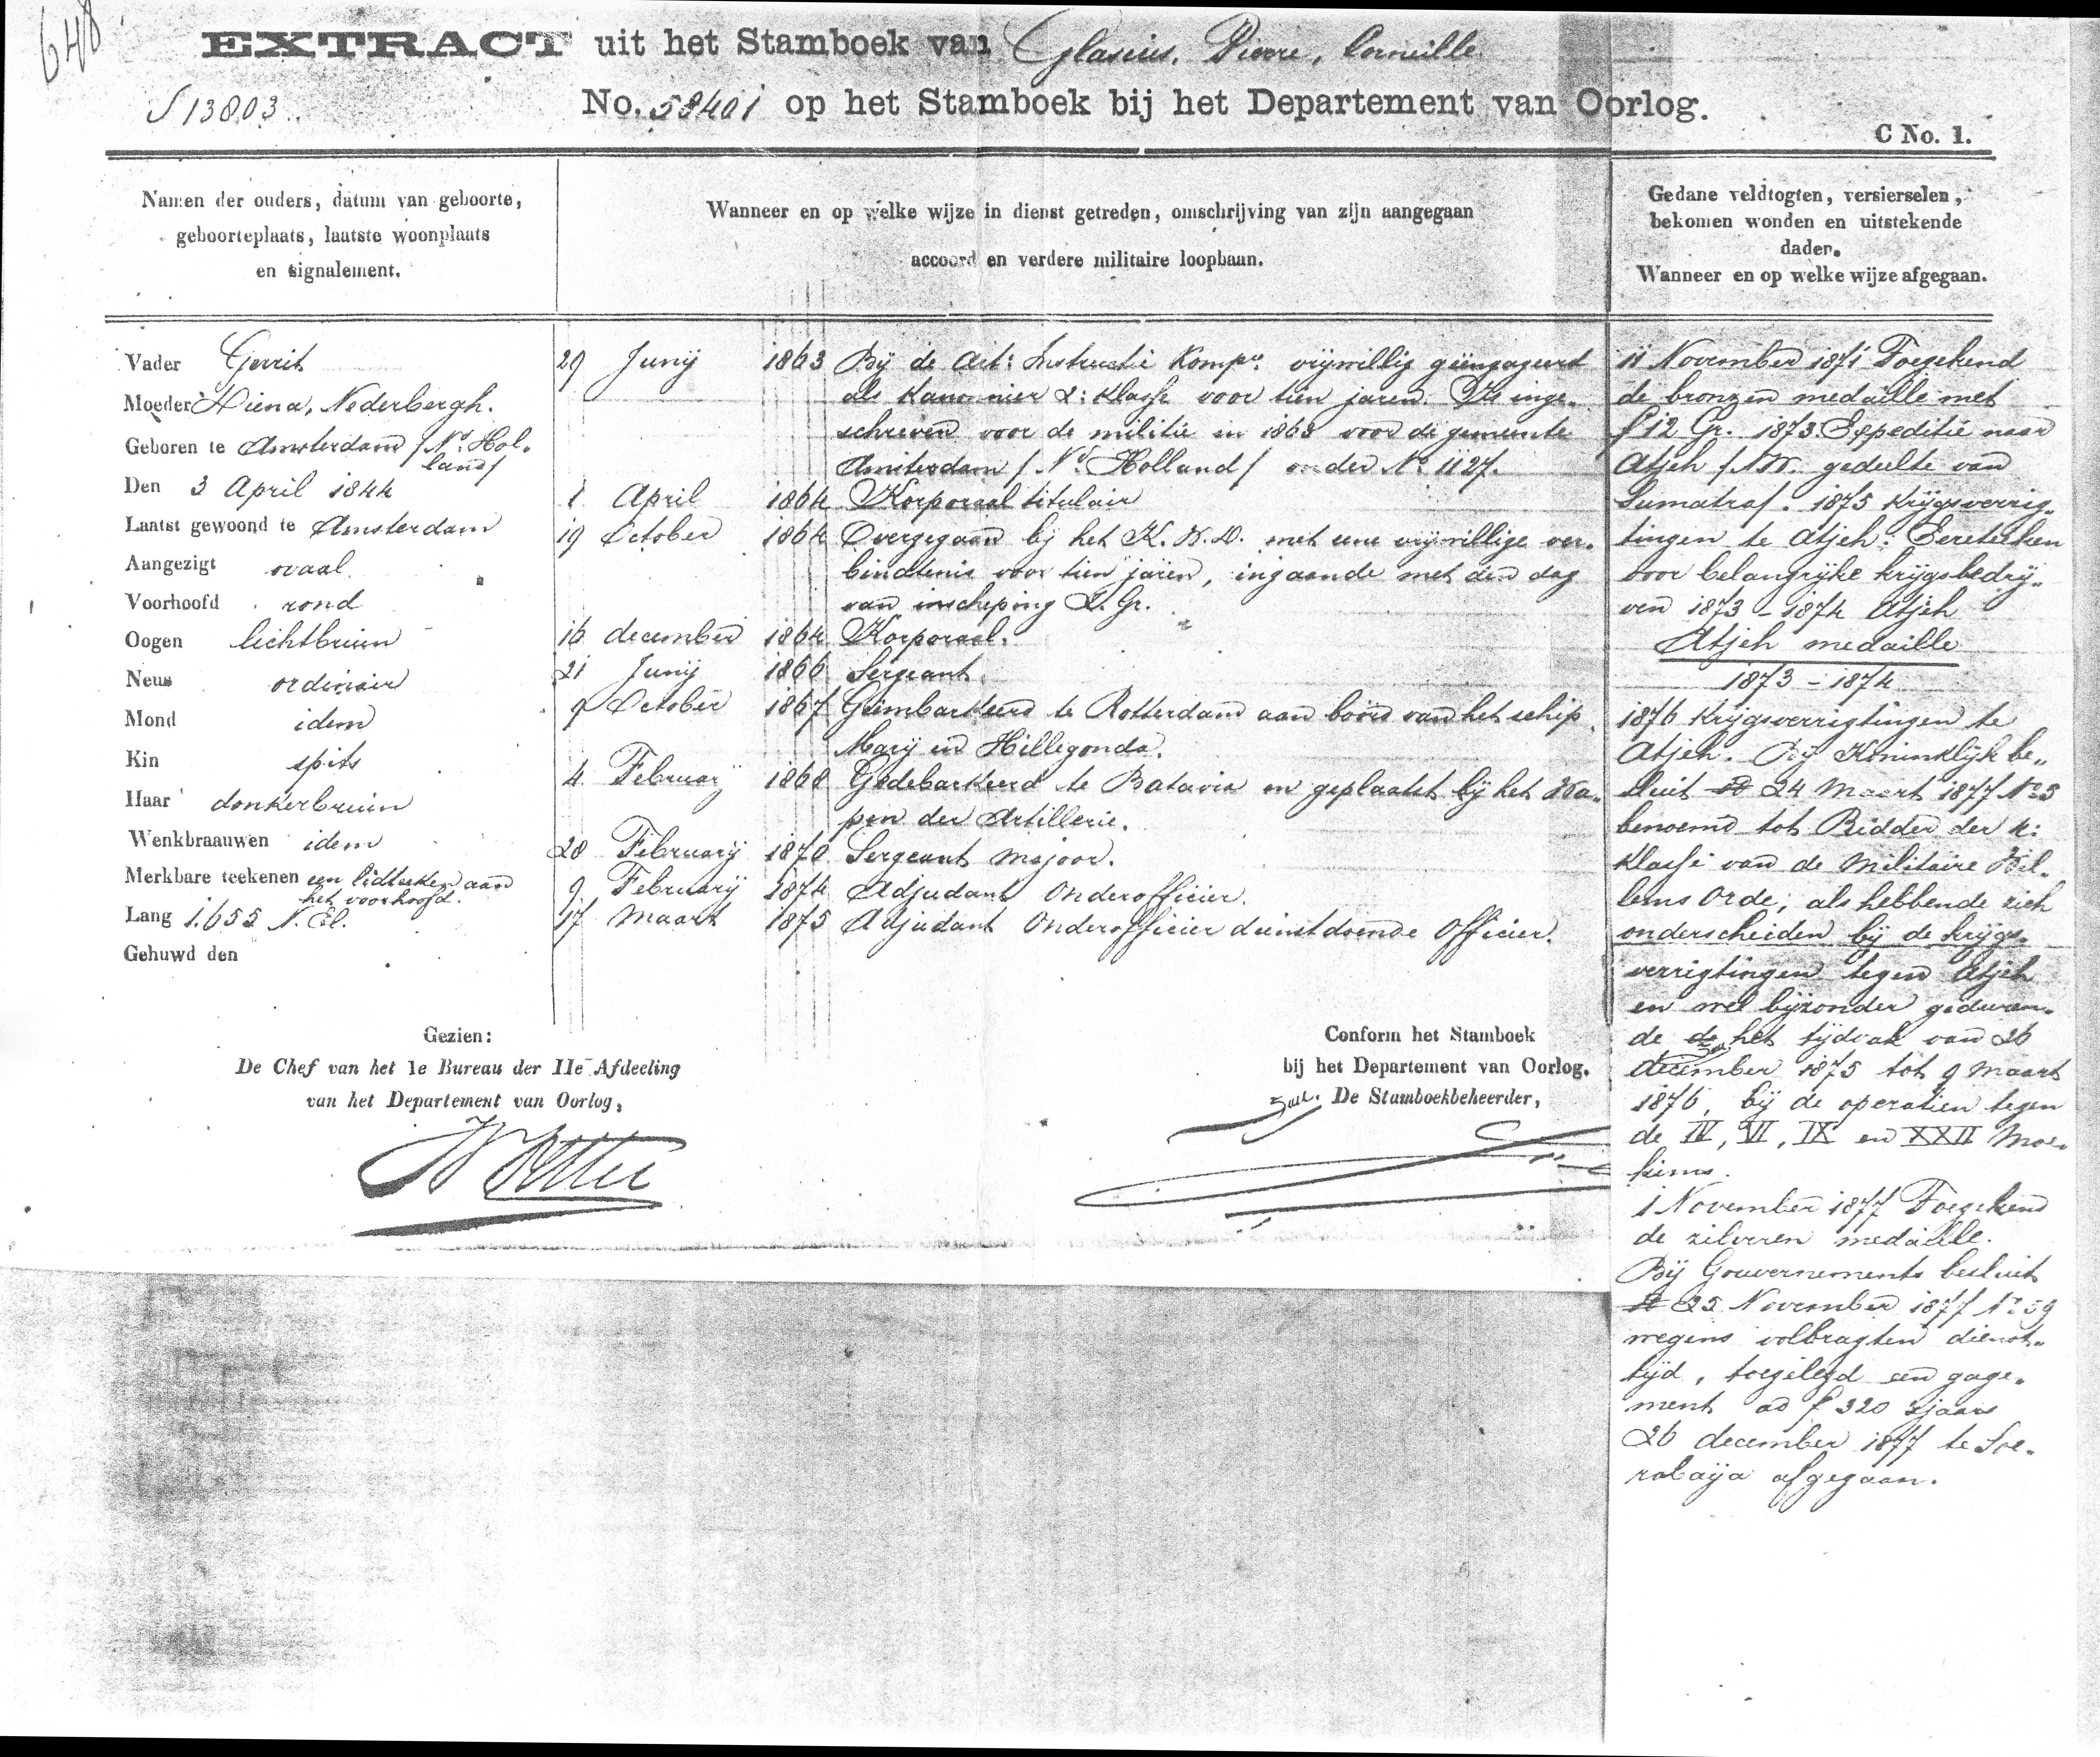 648
EXTRACT uit het Stamboek van Glasius, Pierre, Corneille
S 13803. No. 58401 op het Stamboek bij het Departement van Oorlog.
C No. 1.
Namen der ouders, datum van geboorte,
geboorteplaats, laatste woonplaats
en signalement.
Vader Gerrit
Moeder Diena, Nederbergh.
Geboren te Amsterdam /Nd. Hol-
land/
Den 3 April 1844
Laatst gewoond te Amsterdam
Aangezigt ovaal
Voorhoofd rond
Oogen lichtbruin
Neus ordinair
Mond idem
Kin spits
Haar donkerbruin
Wenkbraauwen idem
Merkbare teekenen een lidteeken aan
het voorhoofd.
Lang 1.655 N. El.
Gehuwd den
Wanneer en op welke wijze in dienst getreden, omschrijving van zijn aangegaan
accoord en verdere militaire loopbaan.
29 Junij 1863 Bij de Art: Instructie Kompe. vrijwillig geëngageerd
als Kanonnier 2: Klasse voor tien jaren. Is inge-
schreven voor de militie in 1863 voor de gemeente
Amsterdam /Nd. Holland/ onder No. 1127.
1 April 1864 Korporaal titulair
19 October 1864 Overgegaan bij het K. W. D. met eene vrijwillige ver-
bindtenis voor tien jaren, ingaande met den dag
van inscheping Z. Gr.
16 december 1864 Korporaal.
21 Junij 1866 Sergeant.
9 October 1867 Geëmbarkeerd te Rotterdam aan boord van het schip
Marij en Hillegonda.
4 Februarij 1868 Gedebarkeerd te Batavia en geplaatst bij het Wa-
pen der Artillerie.
28 Februarij 1870 Sergeant majoor.
9 Februarij 1874 Adjudant Onderofficier.
17 Maart 1875 Adjudant Onderofficier dienstdoende Officier.
Gedane veldtogten, versierselen,
bekomen wonden en uitstekende
daden.
Wanneer en op welke wijze afgegaan.
11 November 1871 Toegekend
de bronzen medaille met
f 12 Gr. 1873. Expeditie naar
Atjeh /N.W. gedeelte van
Sumatra/. 1875 Krijgsverrig-
tingen te Atjeh. Eereteeken
voor belangrijke krijgsbedrij-
ven 1873 - 1874 Atjeh
Atjeh medaille
1873 - 1874
1876 Krijgsverrigtingen te
Atjeh. Bij Koninklijk be-
sluit 24 Maart 1877 No. 3
benoemd tot Ridder der 4:
Klasse van de Militaire Wil-
lems Orde, als hebbende zich
onderscheiden bij de krijgs-
verrigtingen tegen Atjeh
en wel bijzonder geduren-
de het tijdvak van 26
december 1875 tot 9 Maart
1876, bij de operatien tegen
de IV, VI, IX en XXII Moe-
kims.
1 November 1877 Toegekend
de zilveren medaille.
Bij Gouvernements besluit
25 November 1877 No. 59
wegens volbragten dienst-
tijd, toegelegd een gage-
ment ad f 320 's jaars
26 december 1877 te Soe-
rabaija afgegaan.
Gezien:
De Chef van het 1e Bureau der IIe Afdeeling
van het Departement van Oorlog,
Conform het Stamboek
bij het Departement van Oorlog.
De Stamboekbeheerder,